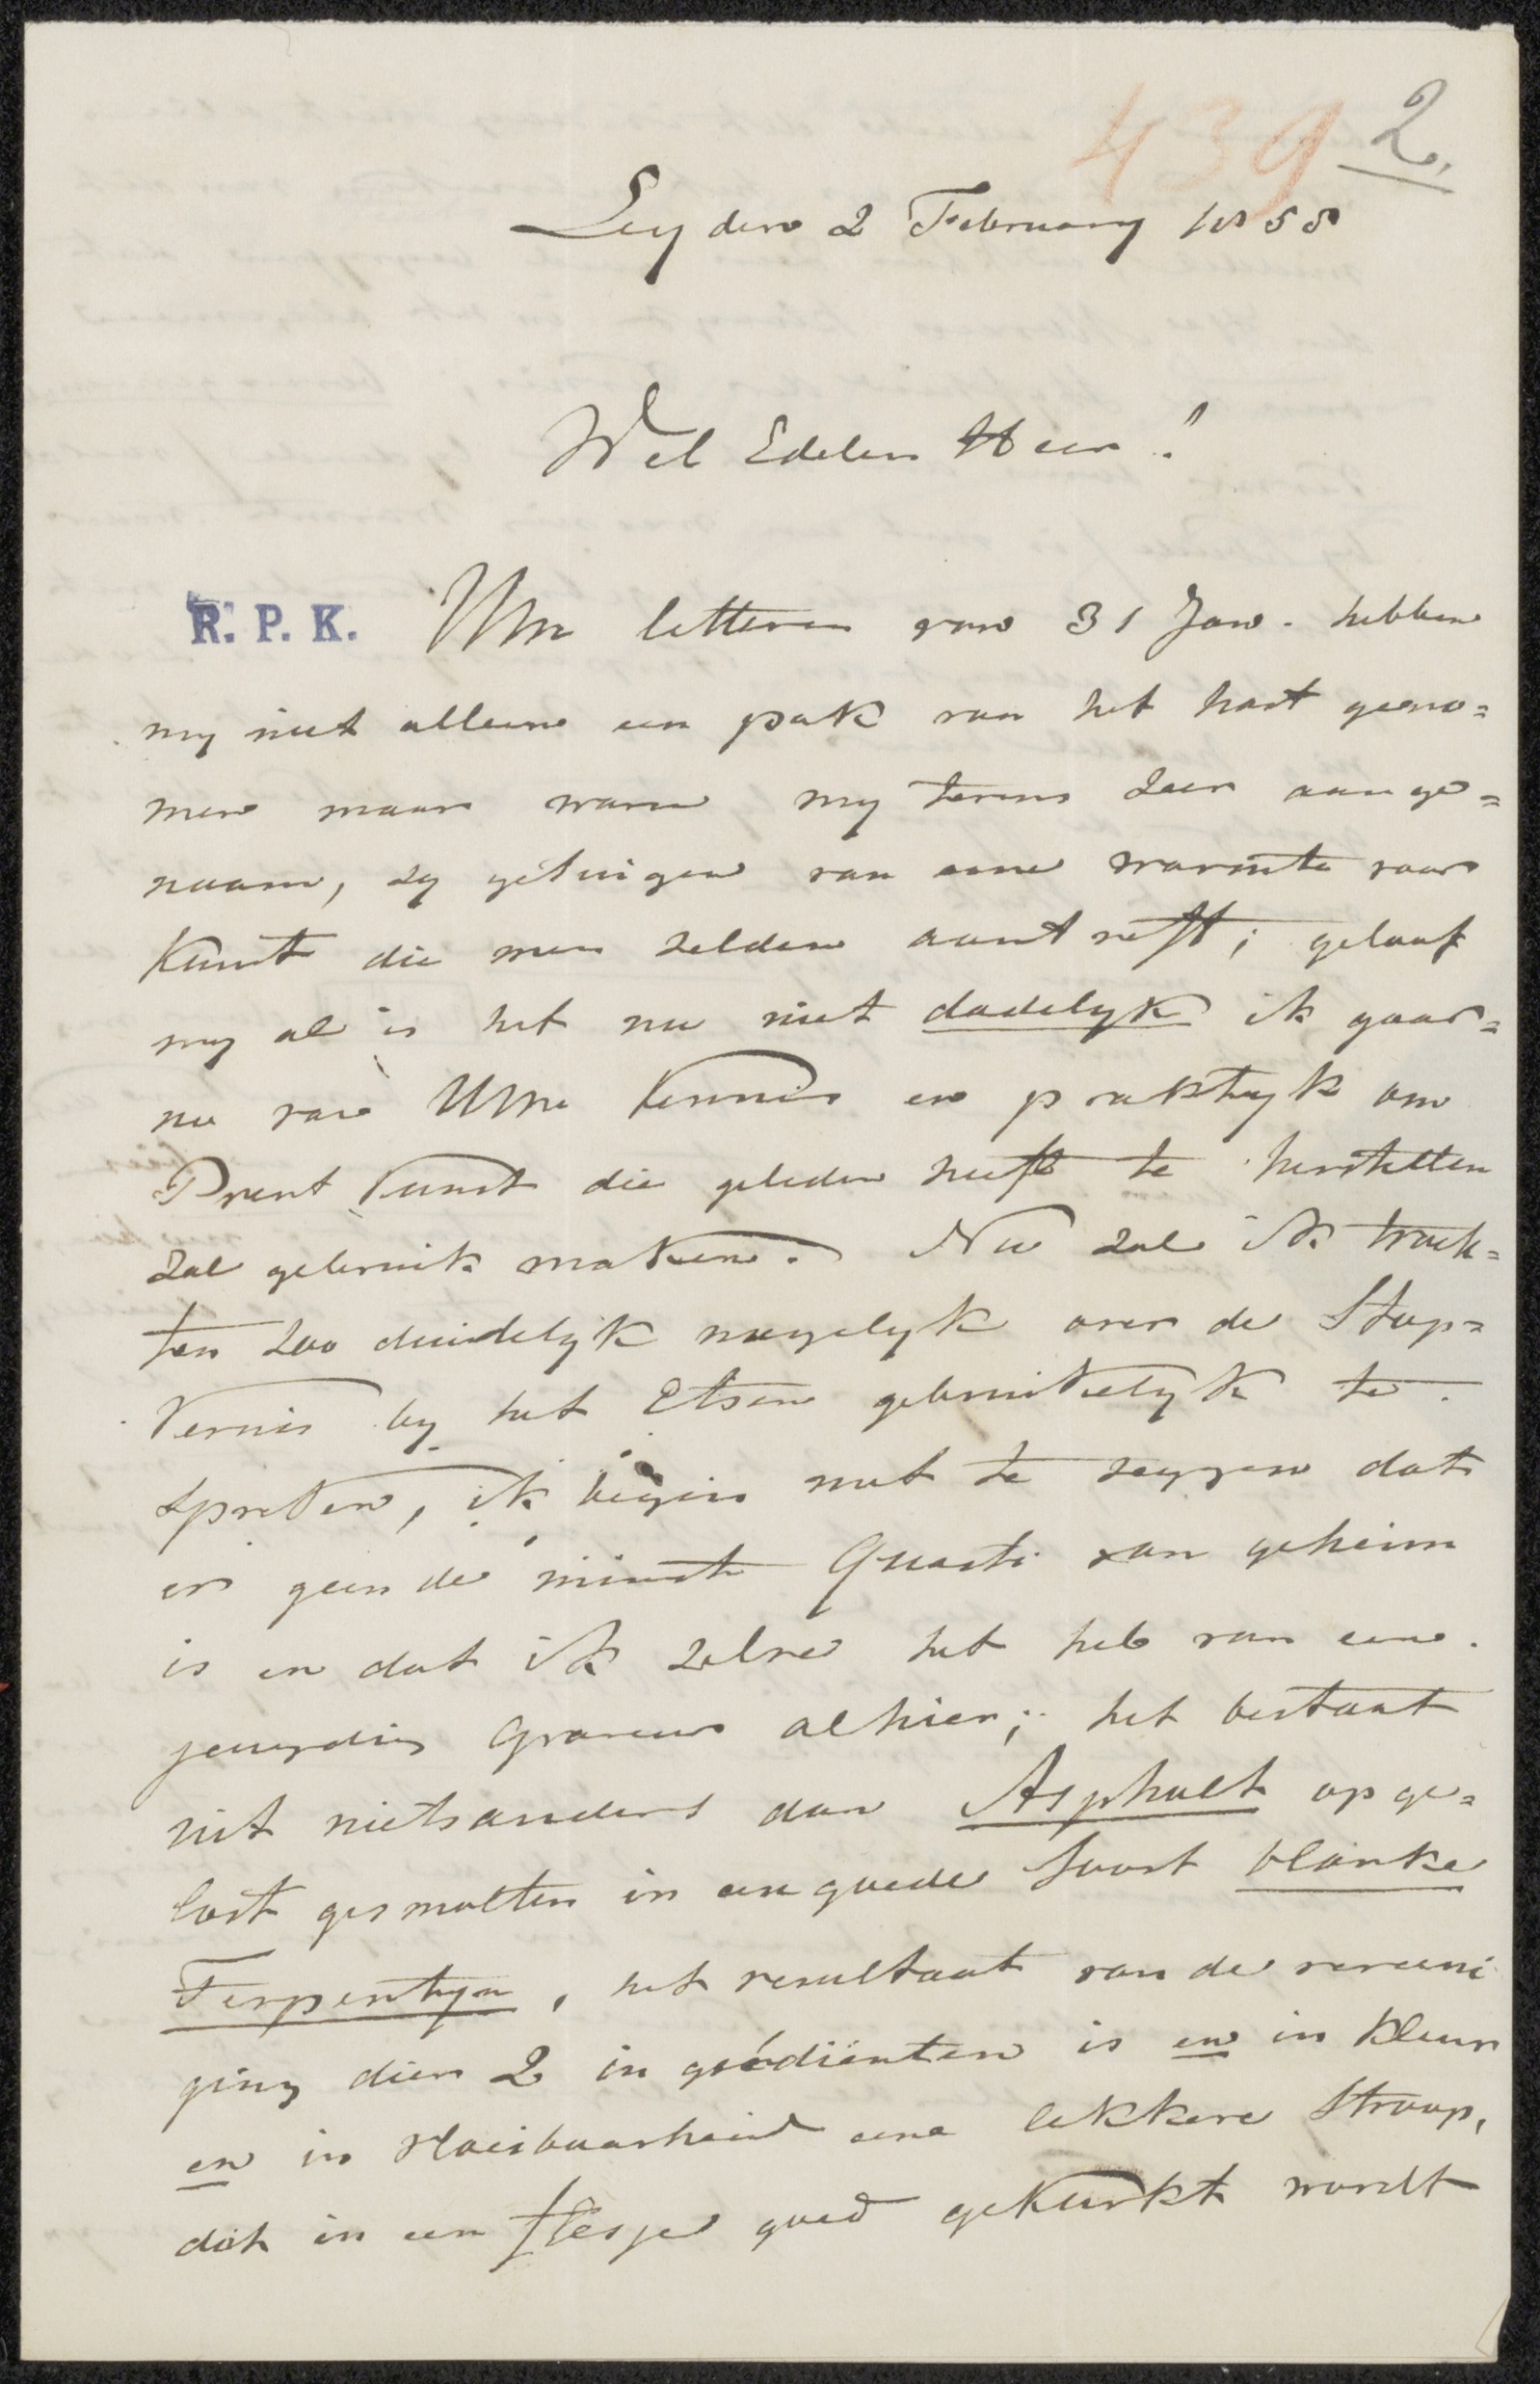 439 2.
Leyden 2 February 1855
Wel Edelen Heer!
R. P. K. UWe letteren van 31 Jan. hebben
my niet alleen een pak van het hart geno=
men maar waren my tevens zeer aange=
naam, zy getuigen van eene warmte voor
Kunst die men zelden aantreft; geloof
my al is het nu niet dadelyk ik gaar=
ne van UWe kennis en praktyk om
Prent kunst die geleden heeft te herstellen
zal gebruik maken. Nu zal ik trach=
ten zoo duidelyk mogelyk over de Stop=
Vernis by het Etsen gebruikelyk te
spreken, ik begin met te zeggen dat
er geen de minste Quasti van geheim
is en dat ik zelve het heb van een
jeugdig Graveur alhier; het bestaat
uit niets anders dan Asphalt opge=
lost gesmolten in een goede soort blanke
Terpentyn, het resultaat van de vereeni
ging dier 2 ingrédiënten is en in kleur
en in vloeibaarheid eene lekkere Stroop,
dat in een flesje goed gekurkt wordt